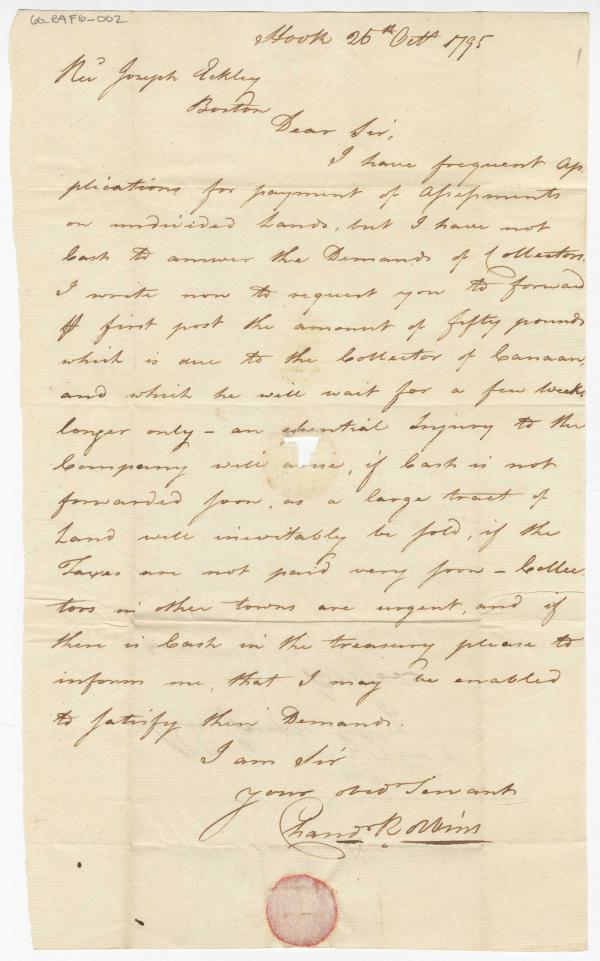 66-BAF6-002
Hook 26th Octr 1795
Revd Joseph Eckley
Boston
Dear Sir,
I have frequent Ap-
plications for payment of Assessments
on undivided Lands, but I have not
Cash to answer the Demands of Collectors.
I write now to request you to forward
first post the amount of fifty pounds
which is due to the Collector of Canaan,
and which he will wait for a few Weeks
longer only – an essential Injury to the
Company will arise, if Cash is not
forwarded soon, as a large tract of
Land will inevitably be sold, if the
Taxes are not paid very soon – Collec-
tors in other towns are urgent, and if
there is Cash in the treasury please to
inform me, that I may be enabled
to satisfy their Demands.
I am Sir
your obedt Servant
Chandr Robbins